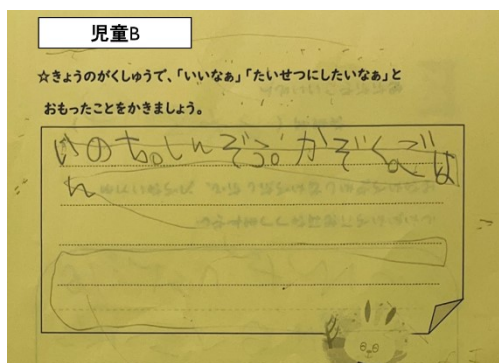 児童B
☆きょうのがくしゅうで、「いいなぁ」「たいせつにしたいなぁ」と
おもったことをかきましょう。
いのち。しんぞぶかぞくのごは
ん